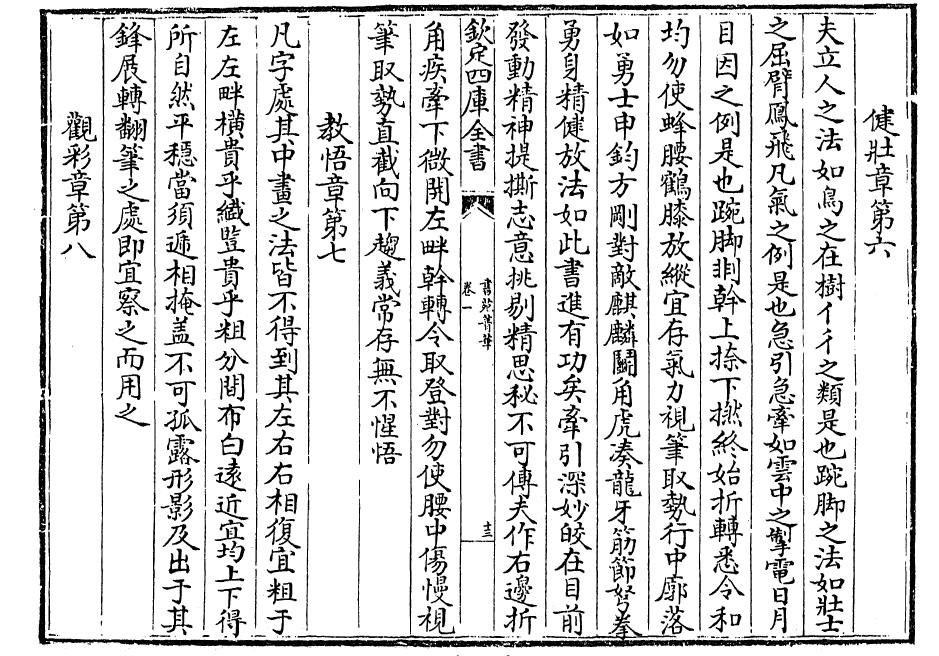 健壯章第六
夫立人之法如鳥之在樹彳亻之類是也踠脚之法如壯士
之屈臂鳳飛凡氣之例是也急引急牽如雲中之掣電日月
目因之例是也踠脚䠋幹上捺下撚終始折轉悉令和
均勿使蜂腰鶴膝放縱宜存氣力視筆取勢行中廓落
如勇士申鈎方剛對敵麒麟鬭角虎凑龍牙筋節弩拳
勇身精健放法如此書進有功矣牽引深妙皎在目前
發動精神提撕志意挑剔精思秘不可傳夫作右邊折
欽定四庫全書
書苑菁華
卷一
十三
角疾牽下微開左畔幹轉令取登對勿使腰中傷慢視
筆取勢直截向下趨義常存無不惺悟
教悟章第七
凡字處其中畫之法皆不得到其左右右相復宜粗于
左左畔橫貴乎纎豎貴乎粗分間布白遠近宜均上下得
所自然平穩當須遞相掩盖不可孤露形影及出于其
鋒展轉翻筆之處即宜察之而用之
觀彩章第八